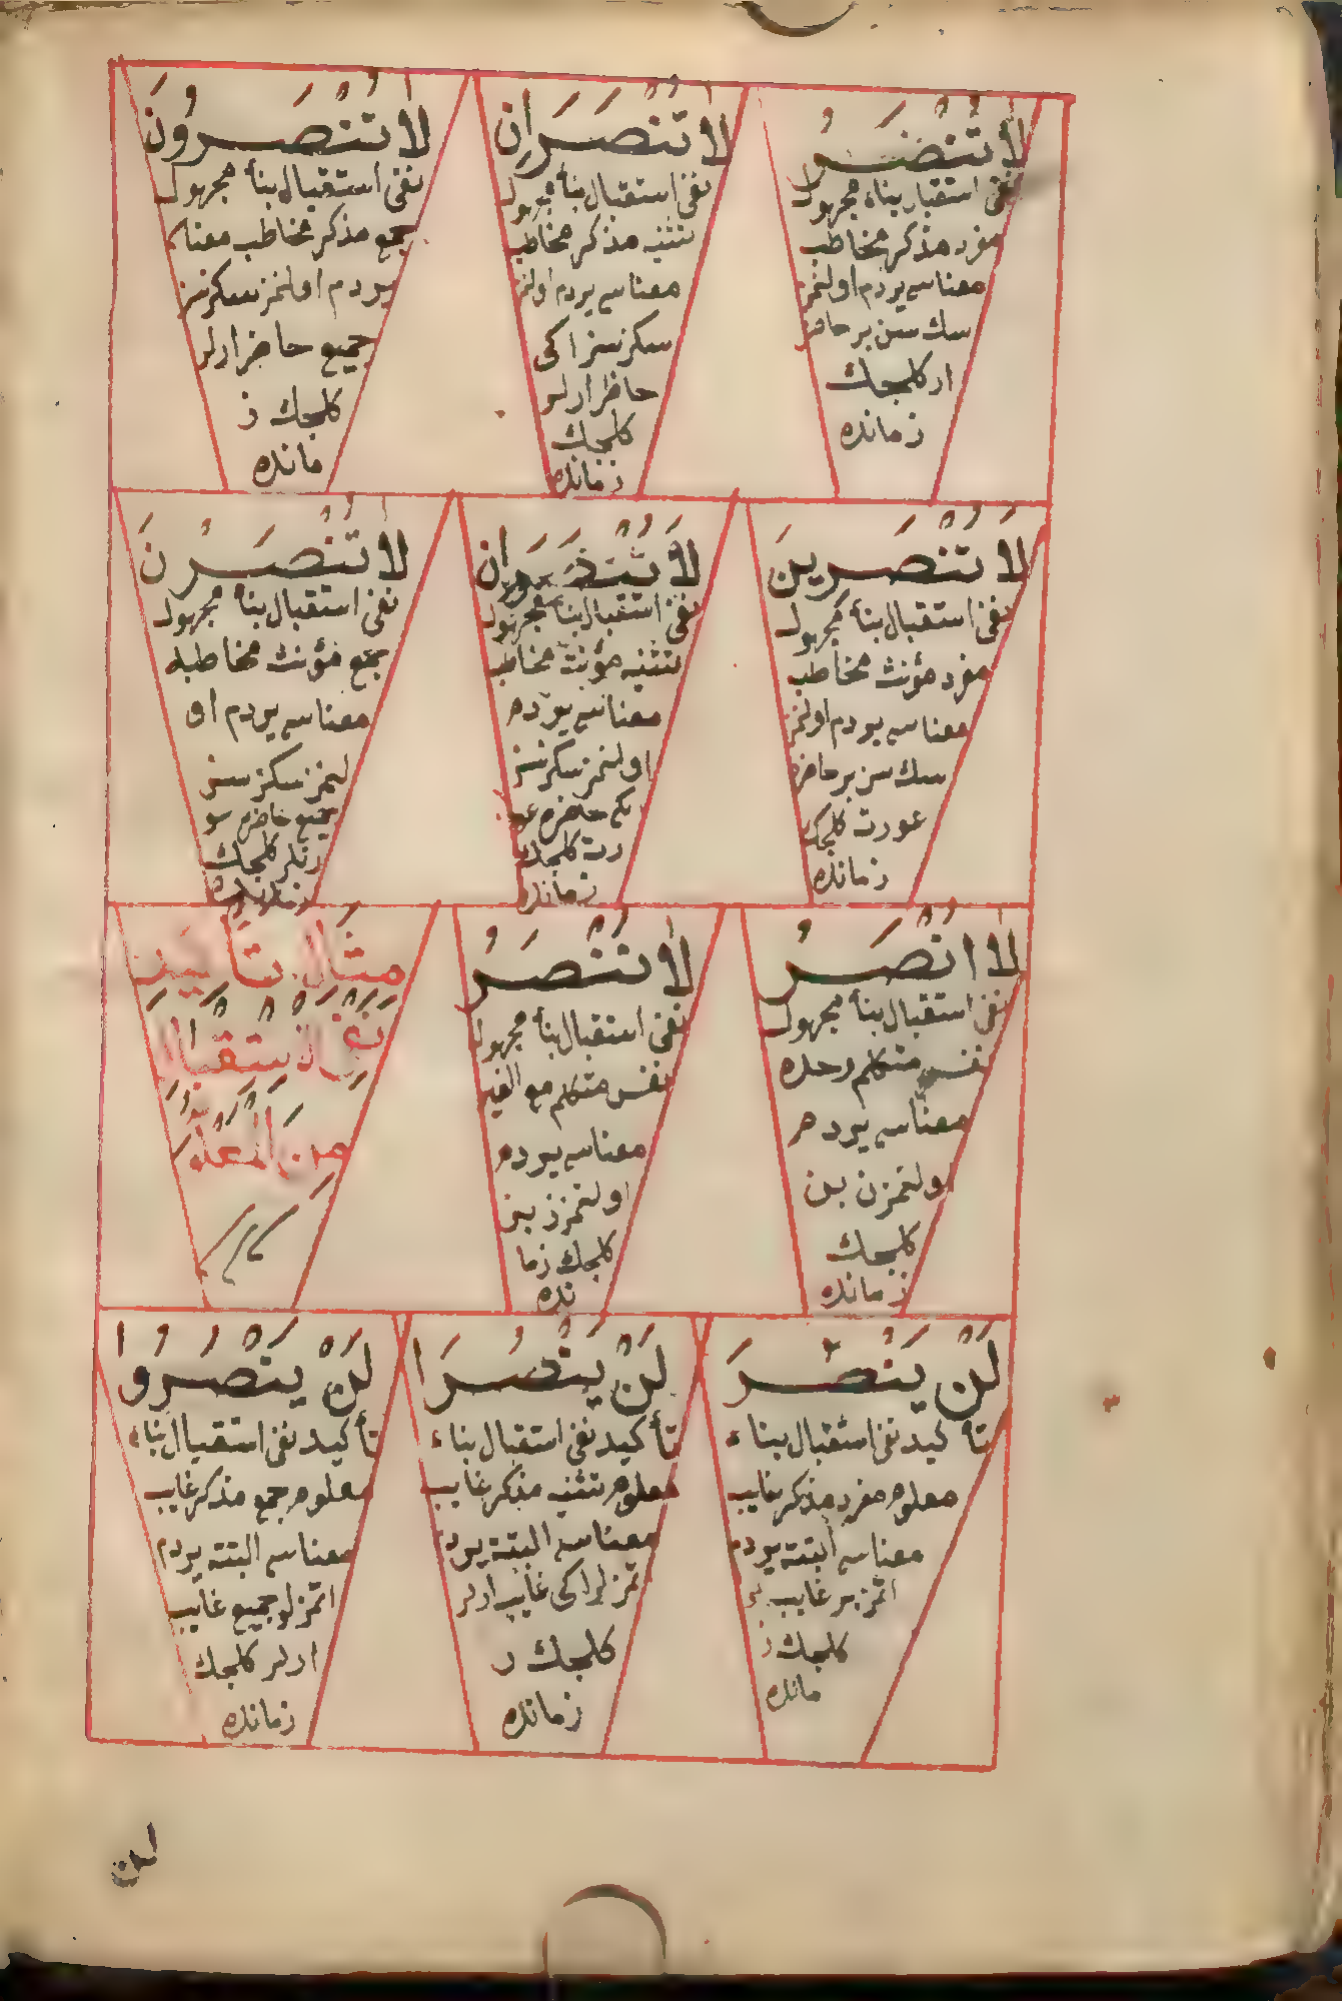 لَا تُنْصَرُ
نفى استقبال بناء مجهول
مفرد مذكر مخاطب
معناسى يردم اولنمز
سك سن بر حاضر
ار كلجك
زمانده
لَا تُنْصَرَانِ
نفى استقبال بنأ مجهول
تثنيه مذكر مخاطب
معناسى يردم اولنمز
سكز سز اكى
حاظر ارلر
كلجك
زمانده
لَا تُنْصَرُونَ
نفى استقبال بنأ مجهول
جمع مذكر مخاطب معناسى
يردم اولنمز سكز سز
جميع حاضر ارلر
كلجك ز
مانده
لَا تُنْصَرِينَ
نفى استقبال بنأ مجهول
مفرد مؤنث مخاطب
معناسى يردم اولنمز
سك سن بر حاضره
عورت كلجك
زمانده
لَا تُنْصَرَانِ
نفى استقبال بنأ مجهول
تثنيه مؤنث مخاطب
معناسى يردم
اولنمز سكز سز
حاضره عو
رت كلجك
زمانده
لَا تُنْصَرْنَ
نفى استقبال بنأ مجهول
جمع مؤنث مخاطبه
معناسى يردم او
لنمز سكز سز
جميع حاضره عو
رتلر كلجك
زمانده
لَا اُنْصَرُ
نفى استقبال بنأ مجهول
نفس متكلم وحده
معناسى يردم
اولنمزن بن
كلجك
زمانده
لَا نُنْصَرُ
نفى استقبال بنأ مجهول
نفس متكلم مع الغير
معناسى يردم
اولنمزز بز
كلجك زما
نده
مثال تأكيد
نفى الاستقبال
من المعلوم
لَنْ يَنْصُرَ
تأكيد نفى استقبال بناء
معلوم مفرد مذكر غايب
معناسى البتة يردم
اتمز بر غايب ار
كلجك ز
مانده
لَنْ يَنْصُرَا
تأكيد نفى استقبال بناء
معلوم تثنيه مذكر غايب
معناسى البتة يردم
اتمزلر اكى غايب ارلر
كلجك ر
زمانده
لَنْ يَنْصُرُوا
تأكيد نفى استقبال بناء
معلوم جمع مذكر غايب
معناسى البتة يردم
اتمزلر جميع غايب
ارلر كلجك
زمانده
لن